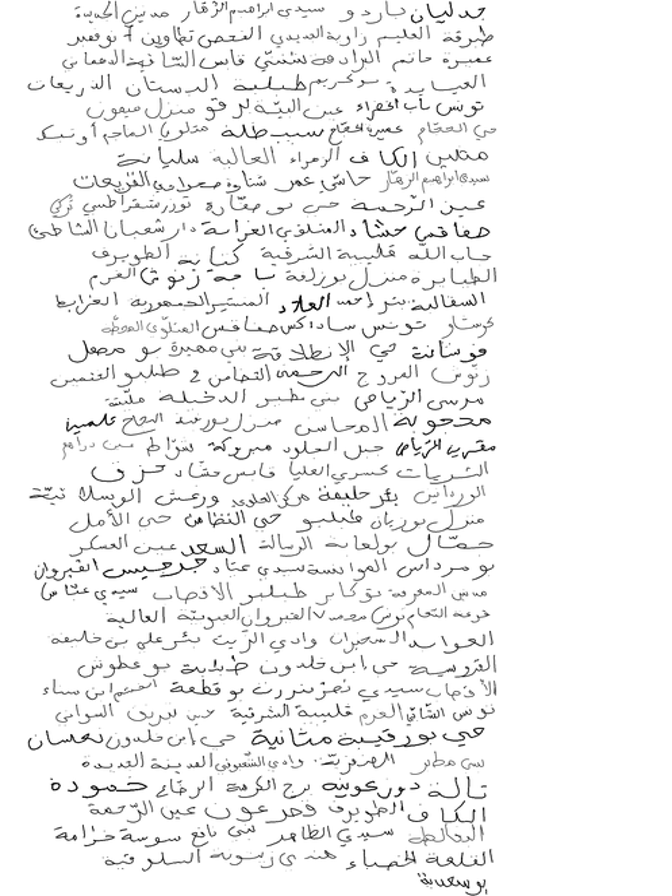 جدليان باردو سيدي ابراهيم الزهار مدنين الجديدة
طبرقة العليم زاوية الجديدي الفحص تطاوين 7 نوفمبر
عميرة حاتم البرادعة شنني قابس الثانية الدهماني
العيايدة بوكريم طبلبة البستان الذريعات
تونس باب الخضراء عين البيّة لرقو منزل ميمون
حي الحجام عميرة الحجاج سبيطلة متلوي الماجم أوتيك
متلين الكاف الزهراء العالية سليانة
سيدي ابراهيم الزهار حاسي عمر شناوة صحراوي القريعات
عين الرّحمة حي بوصفّارة توزر شقراطسي تركي
صفاقس حشاد المتلوي الغرابة دار شعبان الشاطئ
جاب اللّه قليبية الشرقية كتانة الطويرف
الطبايرة منزل بوزلفة باجة زنوش القرم
السقالبة بئر احمد العلاد المنستير الجمهورية العرابط
كركار تونس ساداكس صفاقس المتلوي المحطّة
فوسانة حي الإنطلاقة بني مهيرة بو مصعل
زنوش المروج الرحمة التضامن 2 طبلبو التنمين
مرسى الرياحي بني مطير الدخيلة ملتّة
محجوبة المحاسن منزل بورقيبة النجاح علمين
مقرين الرياض جبل الجلود مبروكة شواط سيدي دراهم
الشريات كسري العليا قابس حشاد حزق
الوردانين بئر حليمة مركز العلوي ورغش الوسلاتيّة
منزل بوزيان طبلبو حي النظامي حي الأمل
جمّال بولعابة الرسالة السعد عين العسكر
بو مرداس العوانسة سيدي عياد جرجيس القيروان
مدنين المعرفة توكابر طبلبو الاقصاب سيدي عبّاس
العوابد السخيرات وادي الزّيت بئر علي بن خليفة
الفروسية حي ابن خلدون طبلبة بو عطوش
الأقصاب سيدي نصر بنزرت بوقطعة ابن سناء
تونس الشابي القرم قليبية الشرقية عين بيريف السواني
حي بورقيبة متانية حي ابن خلدون نعسان
سي مطير المهيريّة وادي الشعبوني المدينة الجديدة
تالة دوز عوينة برج الكرمة الرضاع حمودة
الكاف الطويرف وحرعون عين الرّحمة
البقالطة سيدي الظاهر بني نافع سوسة خزامة
القلعة الخصباء هندي زيتونة السلوقية
بوسعدية